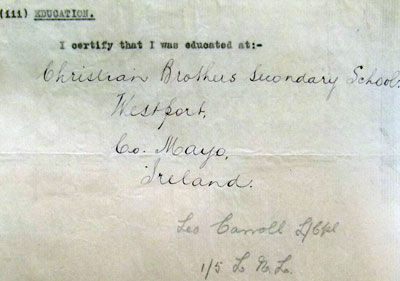 (iii) EDUCATION.
I certify that I was educated at:-
Christian Brothers Secondary School,
Westport,
Co. Mayo,
Ireland.
Leo Carroll L/Cpl
1/5 L. N. L.